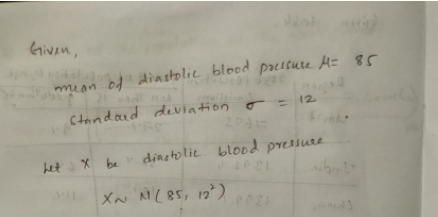 Given,
mean of diastolic blood pressure μ = 85
Standard deviation σ = 12.
Let X be diastolic blood pressure
X ~ N(85, 12²)